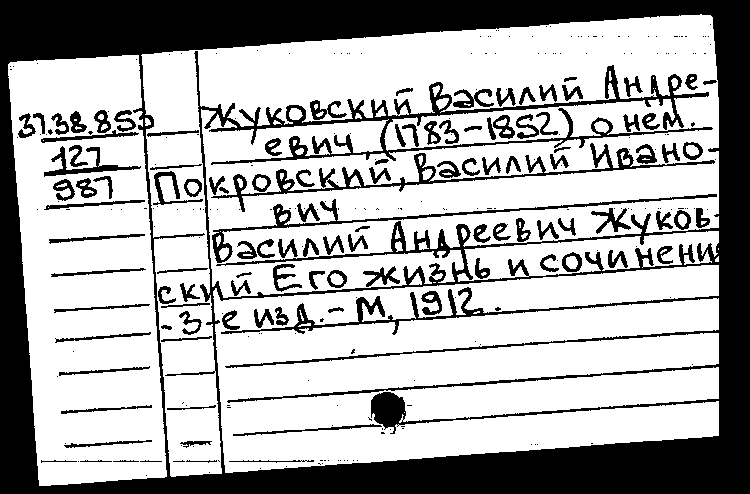 37.38.8.53
127
987
Жуковский, Василий Андре-
евич, (1783-1852), о нём.
Покровский, Василий Ивано-
вич
Василий Андреевич Жуков-
ский. Его жизнь и сочинени
-3-е изд.- М., 1912.